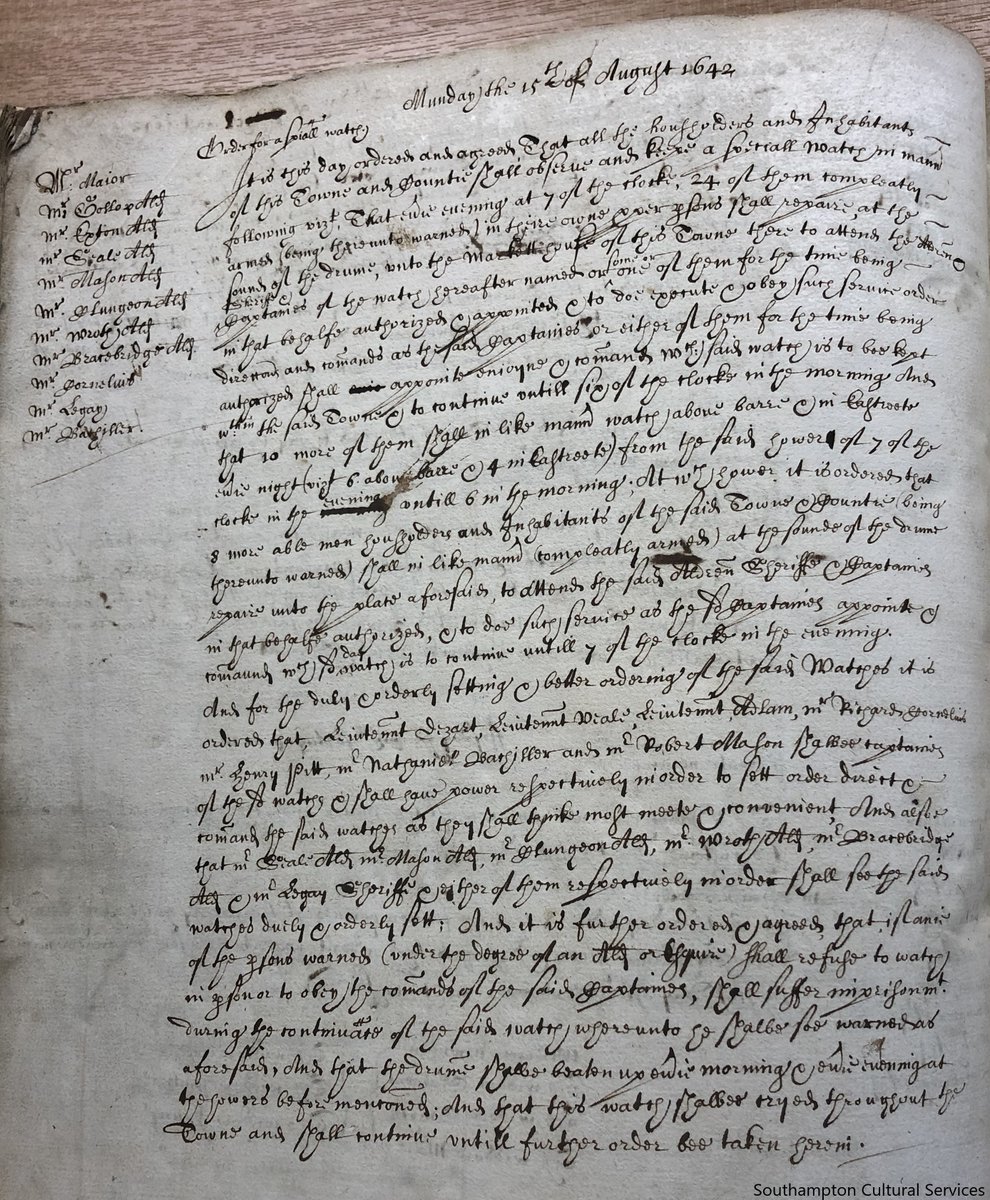 Munday the 15th of August 1642
Order for a spiall watch
Mr Maior
Mr Gollop Ald
Mr Exton Ald
mr Seale Ald
mr Mason Ald
Mr Mungeon Ald
mr wroth Ald
Mr Bracebridge Ald
Mr Cornelius
Mr Legay
Mr Bachiller
It is this day ordered and agreed That all the housholders and Inhabitants
of this Towne and Countie shall observe and keepe a speciall Watch in mann
following vizt, That evie evening at 7 of the clocke, 24 of them compleatly
armed (being thereunto warned) in theire owne pper psons shall repaire at the
sound of the drume, unto the Markett house of this Towne there to attend the Aldren
Sheriffe &
Captaines of the watch hereafter named or some or one of them for the time being
in that behalfe authorized & appointed & to doe execute & obey such service order
direccons and comands as the said Captaines or either of them for the time being
authorized shall appointe enioyne & comand wch said watch is to bee kept
wthin the said Towne & to continue untill six of the clocke in the morning And
that 10 more of them shall in like mann watch above barre & in Eastreete
evie night (vizt 6 above barre & 4 in Eastreete) from the said hower of 7 of the
clocke in the evening untill 6 in the morning, At wch hower it is ordered that
8 more able men housholders and Inhabitants of the said Towne & Countie (being
thereunto warned) shall in like mann (compleatly armed) at the sounde of the drume
repaire unto the place aforesaid, to attend the said Aldren Sheriffe & Captaines
in that behalfe authorized, & to doe such service as the sd Captaines appointe &
comaund wch sd day watch is to continue untill 7 of the clocke in the evening.
And for the duly & orderly setting & better ordering of the said Watches it is
ordered that, Leiutennt Dezart, Leiutennt Veale, Leiutennt Adlam, mr Richard Cornelius
mr Henry Pitt, mr Nathaniel Bachiller and mr Robert Mason shalbee captaines
of the sd watch & shall have power respectively in order to sett order direct &
comand the said watches as they shall thinke most meete & convenient, And alsoe
that mr Seale Ald mr Mason Ald, mr Mungeon Ald, mr Wroth Ald, mr Bracebridge
Ald & mr Legay Sheriffe & either of them respectively in order shall see the said
watches duely & orderly sett; And it is further ordered & agreed that if anie
of the psons warned (under the degree of an Ald or Esquire) shall refuse to watch
in pson or to obey the comands of the said Captaines, shall suffer imprisonmt
during the continuace of the said watch whereunto he shalbe soe warned as
aforesaid, And that the drume shalbe beaten up evie morning & evie evening at
the howers before menconed; And that this watch shalbee cryed throughout the
Towne and shall continue untill further order bee taken herein.
Southampton Cultural Services